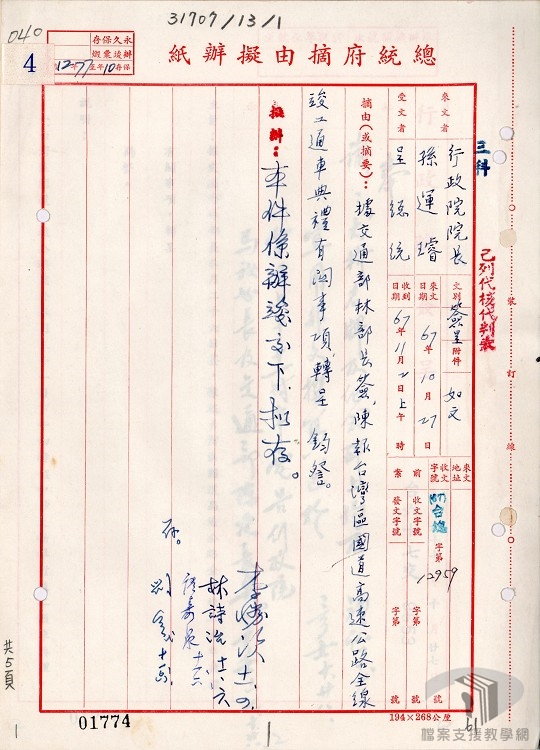 31707/13/1
040
永久保存
辦竣彙繳
保存10年至77年12
4
總統府摘由擬辦紙
三科
已列代核代判表
來文者
行政院院長
孫運璿
受文者
呈總統
文別
簽呈
附件
如文
來文日期
67年10月27日
收到日期
67年11月2日上午 時
來文地址
收文字號
67台總 字第12959號
前案
收文字號 字第 號
發文字號 字第 號
摘由(或摘要):據交通部林部長簽,陳報台灣區國道高速公路全線
竣工通車典禮有關事項,轉呈 鈞詧。
擬辦:本件係辦竣交下,擬存。
存。
林詩治
號
訂
線
共5頁
01774
194×268公厘
61
檔案支援教學網